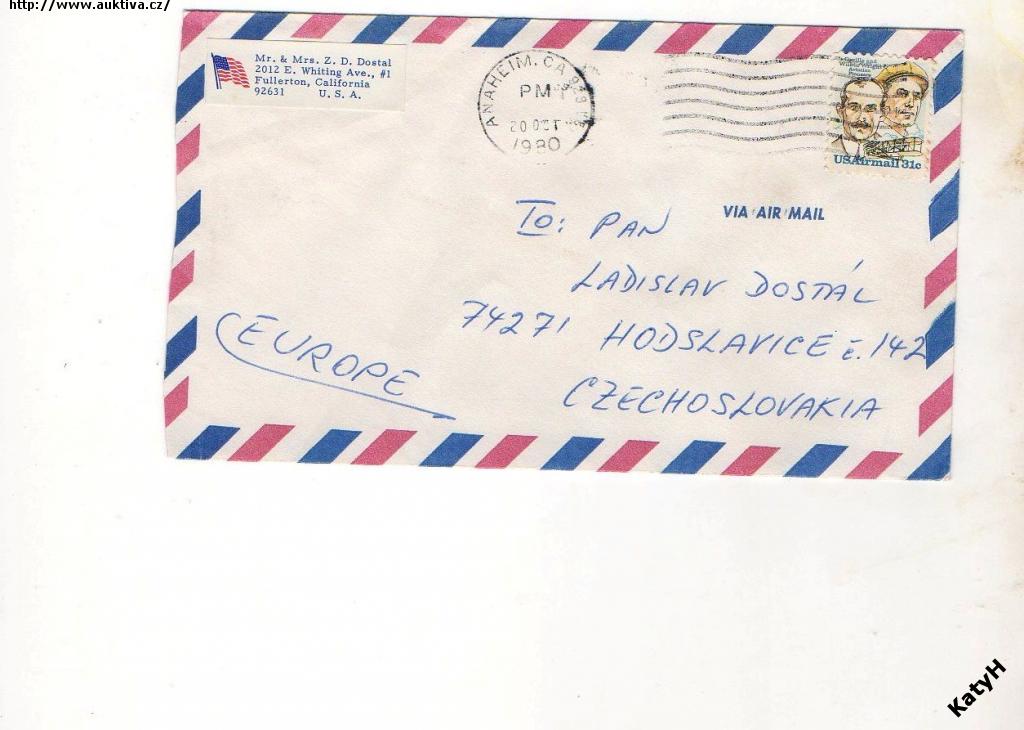 http://www.auktiva.cz/
Mr. & Mrs. Z. D. Dostal
2012 E. Whiting Ave., #1
Fullerton, California
92631 U. S. A.
ANAHEIM, CA
PM
20 OCT
1980
Orville and
Wilbur Wright
Aviation
Pioneers
USAirmail 31c
VIA AIR MAIL
To: PAN
LADISLAV DOSTÁL
74271 HODSLAVICE č. 142
CZECHOSLOVAKIA
EUROPE
KatyH